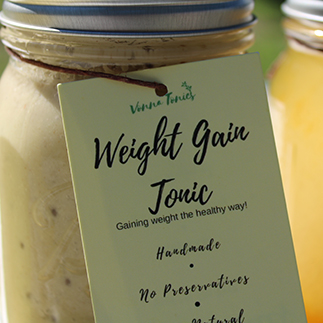 Vonna Tonics
Weight Gain
Tonic
Gaining weight the healthy way!
Handmade
•
No Preservatives
•
Natural